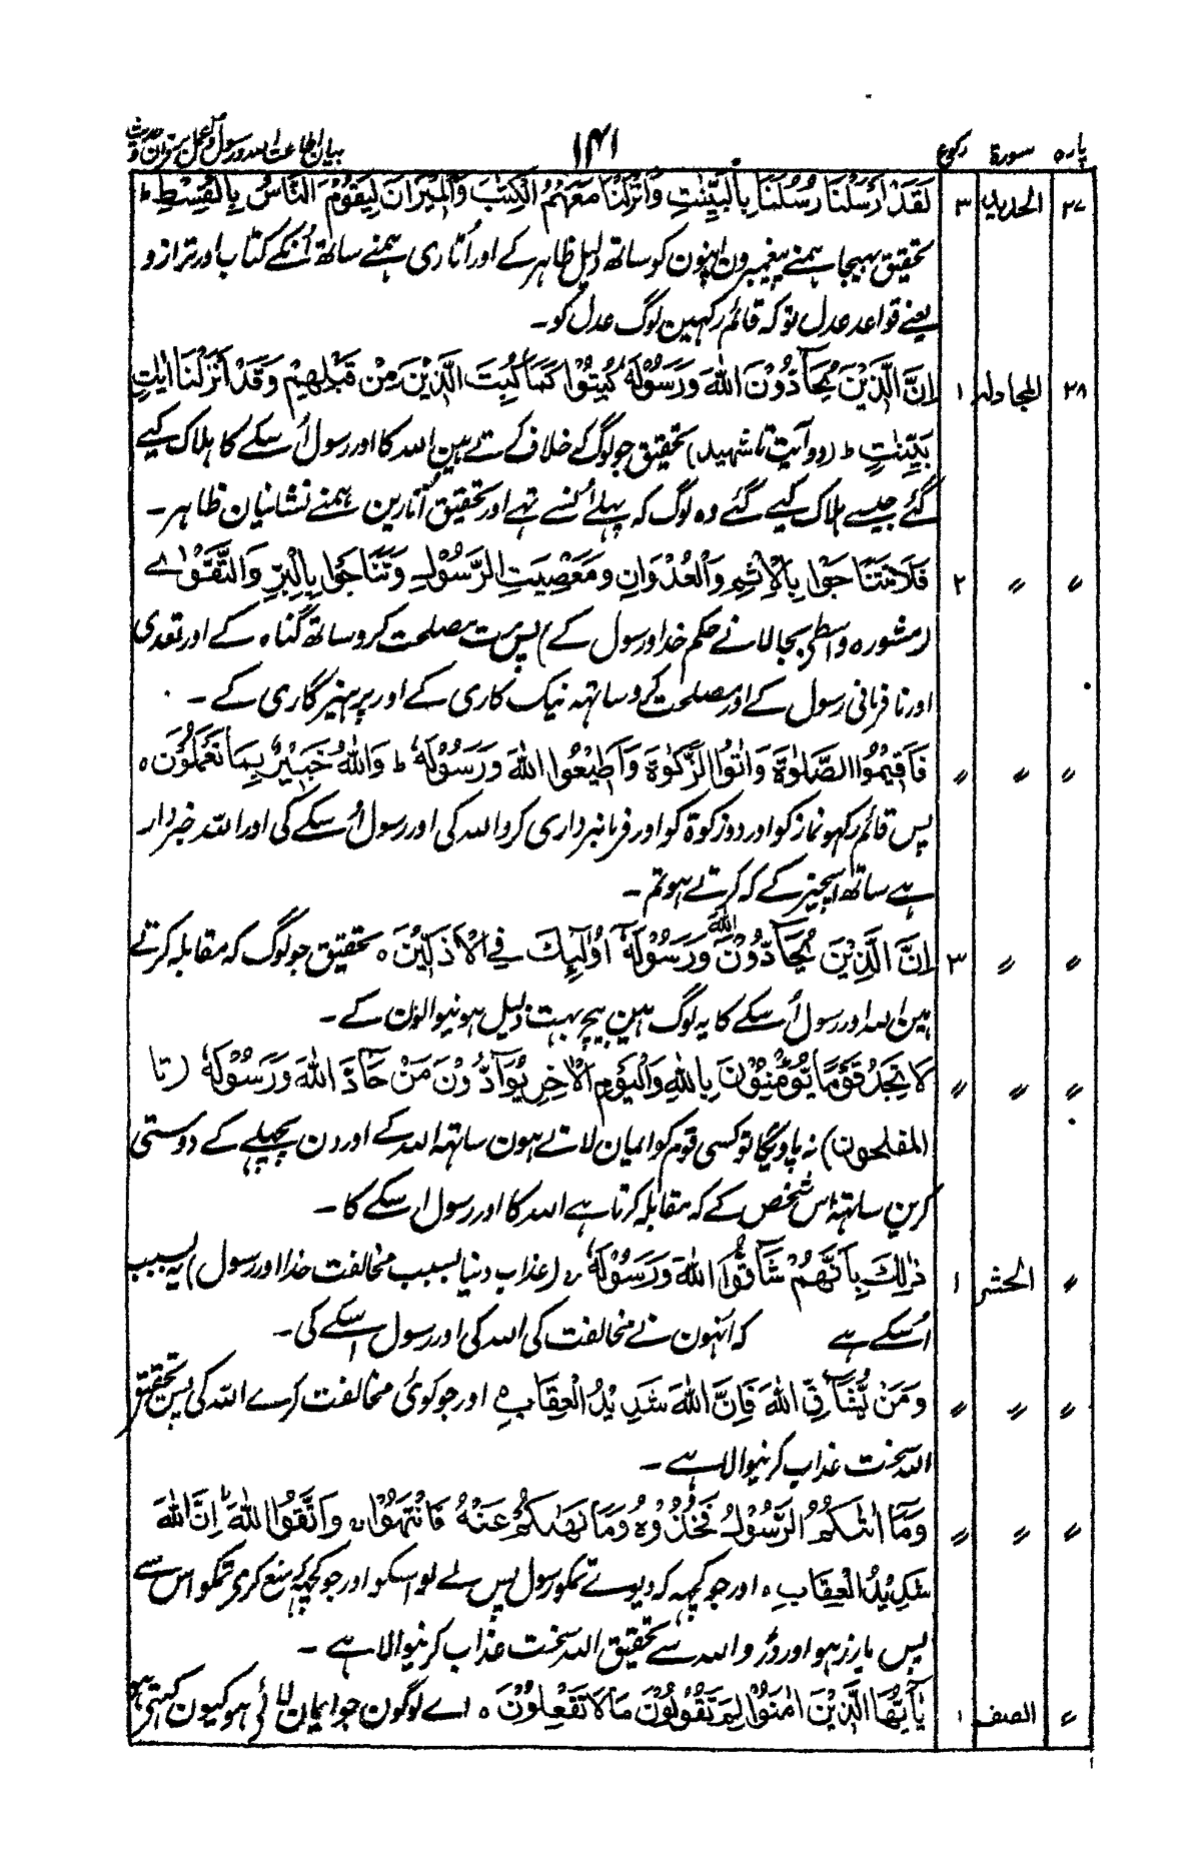 پارہ سورۃ رکوع ۱۴۱ بیان اطاعت اللہ و رسول و عمل بر قرآن و حدیث
۲۷ الحدید ۳ لَقَدْ اَرْسَلْنَا رُسُلَنَا بِالْبَیِّنٰتِ وَاَنْزَلْنَا مَعَهُمُ الْكِتٰبَ وَالْمِیْزَانَ لِیَقُوْمَ النَّاسُ بِالْقِسْطِ ط
تحقیق بھیجا ہمنے پیغمبرون اپنون کو ساتھ دلیل ظاہر کے اور اُتاری ہمنے ساتھ اُنکے کتاب اور ترازو
یعنے قواعد عدل تو کہ قائم رکھین لوگ عدل کو۔
۲۸ المجادلہ ۱ اِنَّ الَّذِیْنَ یُحَآدُّوْنَ اللّٰهَ وَرَسُوْلَهٗ كُبِتُوْا كَمَا كُبِتَ الَّذِیْنَ مِنْ قَبْلِهِمْ وَقَدْ اَنْزَلْنَا اٰیٰتٍ
بَیِّنٰتٍ ط (دو آیت تا شہید) تحقیق جو لوگ کے خلاف کرتے ہین اللہ کا اور رسول اُسکے کا ہلاک کیے
گئے جیسے ہلاک کیے گئے وہ لوگ کہ پہلے اُنسے تھے اور تحقیق اُتارین ہمنے نشانیان ظاہر۔
〃 〃 ۲ فَلَا تَتَنَاجَوْا بِالْاِثْمِ وَالْعُدْوَانِ وَمَعْصِیَتِ الرَّسُوْلِ وَتَنَاجَوْا بِالْبِرِّ وَالتَّقْوٰی
(مشورہ واسطے بجالانے حکم خدا و رسول کے) پس مت مصلحت کرو ساتھ گناہ کے اور تعدی
اور نافرمانی رسول کے اور مصلحت کرو ساتھہ نیک کاری کے اور پرہیزگاری کے۔
〃 〃 〃 فَاَقِیْمُوا الصَّلٰوةَ وَاٰتُوا الزَّكٰوةَ وَاَطِیْعُوا اللّٰهَ وَرَسُوْلَهٗ ط وَاللّٰهُ خَبِیْرٌۢ بِمَا تَعْمَلُوْنَ ہ
پس قائم رکھو نماز کو اور دو زکوۃ کو اور فرمانبرداری کرو اللہ کی اور رسول اُسکے کی اور اللہ خبردار
ہے ساتھ اُسچیز کے کہ کرتے ہو تم۔
〃 〃 ۳ اِنَّ الَّذِیْنَ یُحَآدُّوْنَ اللّٰهَ وَرَسُوْلَهٗٓ اُولٰٓئِكَ فِی الْاَذَلِّیْنَ ہ تحقیق جو لوگ کہ مقابلہ کرتے
ہین اللہ اور رسول اُسکے کا یہ لوگ ہین بیچ بہت ذلیل ہونیوالون کے۔
〃 〃 〃 لَا تَجِدُ قَوْمًا یُّؤْمِنُوْنَ بِاللّٰهِ وَالْیَوْمِ الْاٰخِرِ یُوَآدُّوْنَ مَنْ حَآدَّ اللّٰهَ وَرَسُوْلَهٗ (تا
المفلحون) نہ پاویگا تو کسی قوم کو ایمان لاتے ہون ساتھہ اللہ کے اور دن پچھلے کے دوستی
کرین ساتھہ اُس شخص کے کہ مقابلہ کرتا ہے اللہ کا اور رسول اسکے کا۔
〃 الحشر ۱ ذٰلِكَ بِاَنَّهُمْ شَآقُّوا اللّٰهَ وَرَسُوْلَهٗ ج (عذاب دنیا بسبب مخالفت خدا اور رسول) یہ بسبب
اُسکے ہے کہ اُنہون نے مخالفت کی اللہ کی اور رسول اسکے کی۔
〃 〃 〃 وَمَنْ یُّشَآقِّ اللّٰهَ فَاِنَّ اللّٰهَ شَدِیْدُ الْعِقَابِ ہ اور جو کوئی مخالفت کرے اللہ کی پس تحقیق
اللہ سخت عذاب کرنیوالا ہے۔
〃 〃 〃 وَمَآ اٰتٰىكُمُ الرَّسُوْلُ فَخُذُوْهُ وَمَا نَهٰىكُمْ عَنْهُ فَانْتَهُوْا ج وَاتَّقُوا اللّٰهَ ط اِنَّ اللّٰهَ
شَدِیْدُ الْعِقَابِ ہ اور جو کچھہ کہ دیوے تمکو رسول پس لے لو اسکو اور جو کچھہ کہ منع کرے تمکو اس سے
پس باز رہو اور ڈرو اللہ سے تحقیق اللہ سخت عذاب کرنیوالا ہے۔
〃 الصف ۱ یٰٓاَیُّهَا الَّذِیْنَ اٰمَنُوْا لِمَ تَقُوْلُوْنَ مَا لَا تَفْعَلُوْنَ ہ اے لوگون جو ایمان لائے ہو کیون کہتے ہو